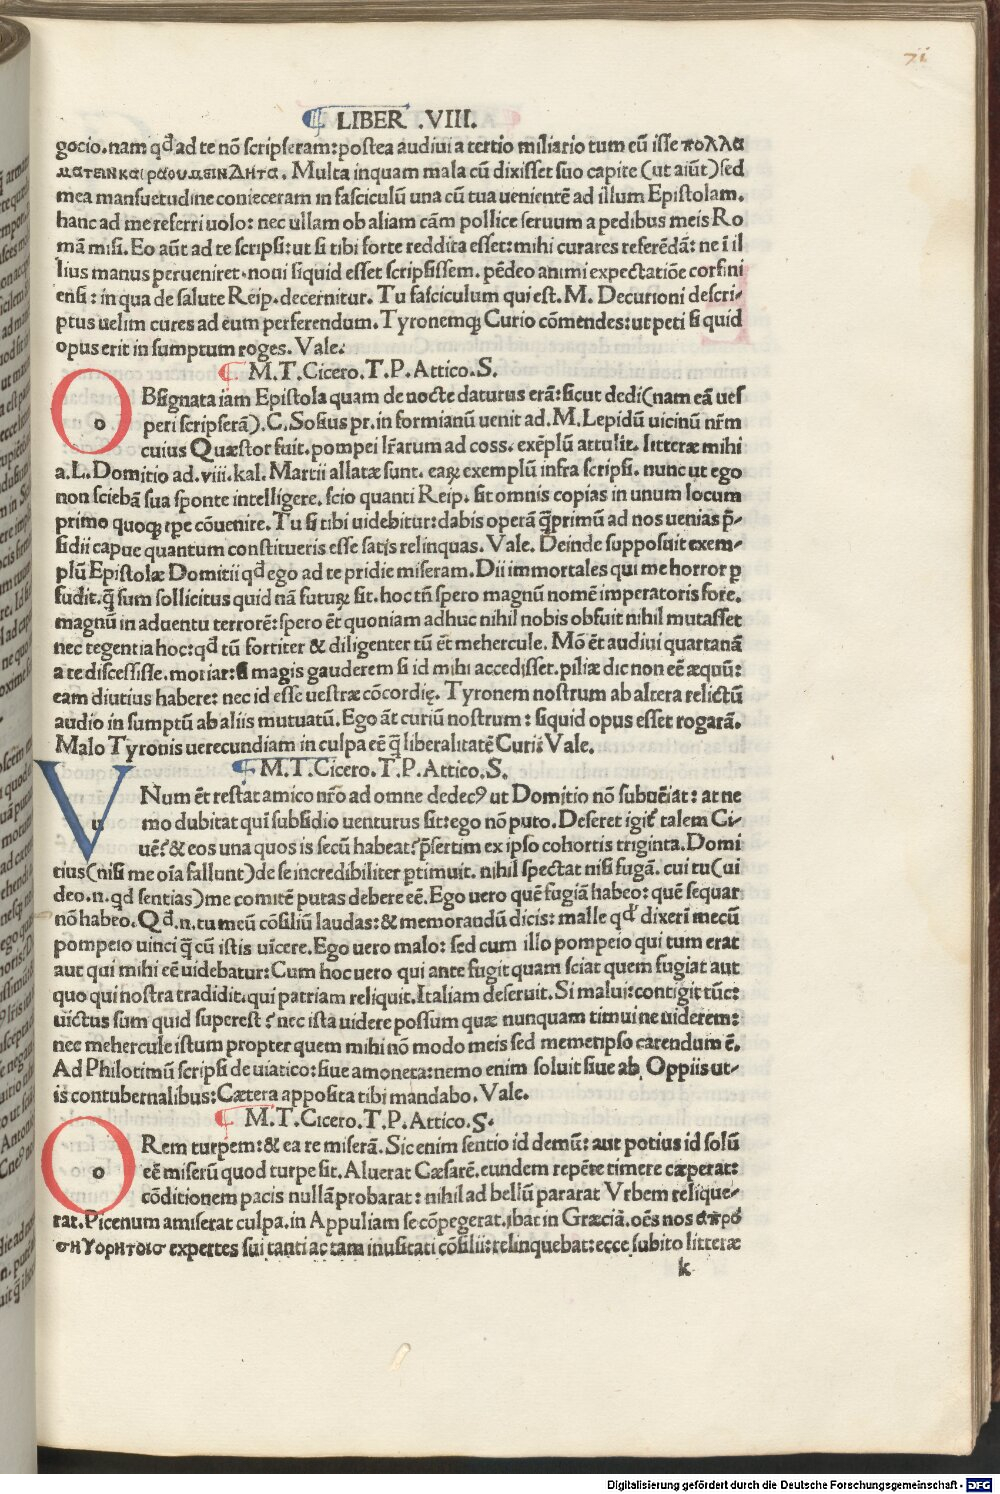 71
LIBER .VIII.
gocio.nam qd̄ ad te nō ſcripſeram:poſtea audiui a tertio miliario tum eū iſſe πολλα
ματεινκαιραουδεινΔητα. Multa inquam mala cū dixiſſet ſuo capite (ut aiūt)ſed
mea manſuetudine conieceram in faſciculū una cū tua uenientē ad illum Epiſtolam.
hanc ad me referri uolo: nec ullam ob aliam cām pollice ſeruum a pedibus meis Ro
mā miſi. Eo aūt ad te ſcripſi:ut ſi tibi forte reddita eſſet:mihi curares referēdā: ne ī il
lius manus perueniret.noui ſiquid eſſet ſcripſiſſem. pēdeo animi expectatiōe corfini
enſi: in qua de ſalute Reip.decernitur. Tu faſciculum qui eſt. M. Decurioni deſcri-
ptus uelim cures ad eum perferendum. Tyronemqꝫ Curio cōmendes:ut peti ſi quid
opus erit in ſumptum roges. Vale.
M.T.Cicero.T.P.Attico.S.
O
o
Bſignata iam Epiſtola quam de nocte daturus erā:ſicut dedi(nam eā ueſ
peri ſcripſerā).C.Soſius pr.in formianū uenit ad.M.Lepidū uicinū nr̄m
cuius Quæſtor fuit.pompei lr̄arum ad coss.exēplū attulit. litteræ mihi
a.L.Domitio ad.viii.kal. Martii allatæ ſunt. eaꝝ exemplū infra ſcripſi. nunc ut ego
non ſciebā ſua ſponte intelligere. ſcio quanti Reip. ſit omnis copias in unum locum
primo quoqꝫ tp̄e cōuenire. Tu ſi tibi uidebitur:dabis operā q̄primū ad nos uenias p̄-
ſidii capue quantum conſtitueris eſſe ſatis relinquas. Vale. Deinde ſuppoſuit exem-
plū Epiſtolæ Domitii qd̄ ego ad te pridie miſeram. Dii immortales qui me horror ꝑ
fudit.q̄ ſum ſollicitus quid nā futuꝝ ſit. hoc tn̄ ſpero magnū nomē imperatoris fore.
magnū in aduentu terrorē:ſpero ēt quoniam adhuc nihil nobis obfuit nihil mutaſſet
nec tegentia hoc:qd̄ tū fortiter & diligenter tū ēt mehercule. Mō ēt audiui quartanā
a te diſceſſiſſe.moriar:ſi magis gauderem ſi id mihi accediſſet.piliæ dic non eē æquū:
eam diutius habere: nec id eſſe ueſtræ cōcordię. Tyronem noſtrum ab altera relictū
audio in ſumptū ab aliis mutuatū. Ego āt curiū noſtrum: ſiquid opus eſſet rogarā.
Malo Tyronis uerecundiam in culpa eē q̄ liberalitatē Curii Vale.
M.T.Cicero.T.P.Attico.S.
V
u
Num ēt reſtat amico nr̄o ad omne dedecꝰ ut Domitio nō ſubuēiat: at ne
mo dubitat quī ſubſidio uenturus ſit:ego nō puto. Deſeret igit̄ talem Ci-
uē?& eos una quos is ſecū habeat?p̄ſertim ex ipſo cohortis triginta.Domi
tius(niſi me oīa fallunt)de ſe incredibiliter ꝑtimuit. nihil ſpectat niſi fugā. cui tu(ui
deo.n.qd̄ ſentias)me comitē putas debere eē. Ego uero quē fugiā habeo: quē ſequar
nō habeo. Qd̄.n.tu meū cōſiliū laudas:& memorandū dicis: malle qd̄ dixeri mecū
pompeio uinci q̄ cū iſtis uīcere. Ego uero malo: ſed cum illo pompeio qui tum erat
aut qui mihi eē uidebatur:Cum hoc uero qui ante fugit quam ſciat quem fugiat aut
quo qui noſtra tradidit.qui patriam reliquit.Italiam deſeruit. Si malui:contigit tūc:
uictus ſum quid ſupereſt? nec iſta uidere poſſum quæ nunquam timui ne uiderem:
nec mehercule iſtum propter quem mihi nō modo meis ſed memetipſo carendum ē.
Ad Philotimū ſcripſi de uiatico: ſiue amoneta:nemo enim ſoluit ſiue ab Oppiis ut-
is contubernalibus:Cætera appoſita tibi mandabo. Vale.
M.T.Cicero.T.P.Attico.S.
O
o
Rem turpem:& ea re miſerā. Sic enim ſentio id demū: aut potius id ſolū
eē miſerū quod turpe ſit. Aluerat Cæſarē.eundem repēte timere cæperat:
cōditionem pacis nullā probarat: nihil ad bellū pararat Vrbem relique-
rat.Picenum amiſerat culpa.in Appuliam ſe cōpegerat.ibat in Græciā.oēs nos απρο
σηΥορητοισ expertes ſui tanti ac tam inuſitati cōſilii:relinquebat:ecce ſubito litteræ
k
Digitalisierung gefördert durch die Deutsche Forschungsgemeinschaft - DFG